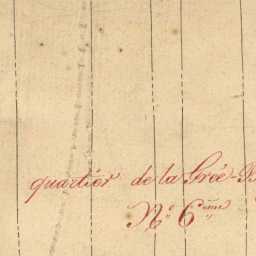 quartiér de la Grée-B
N° 6ème